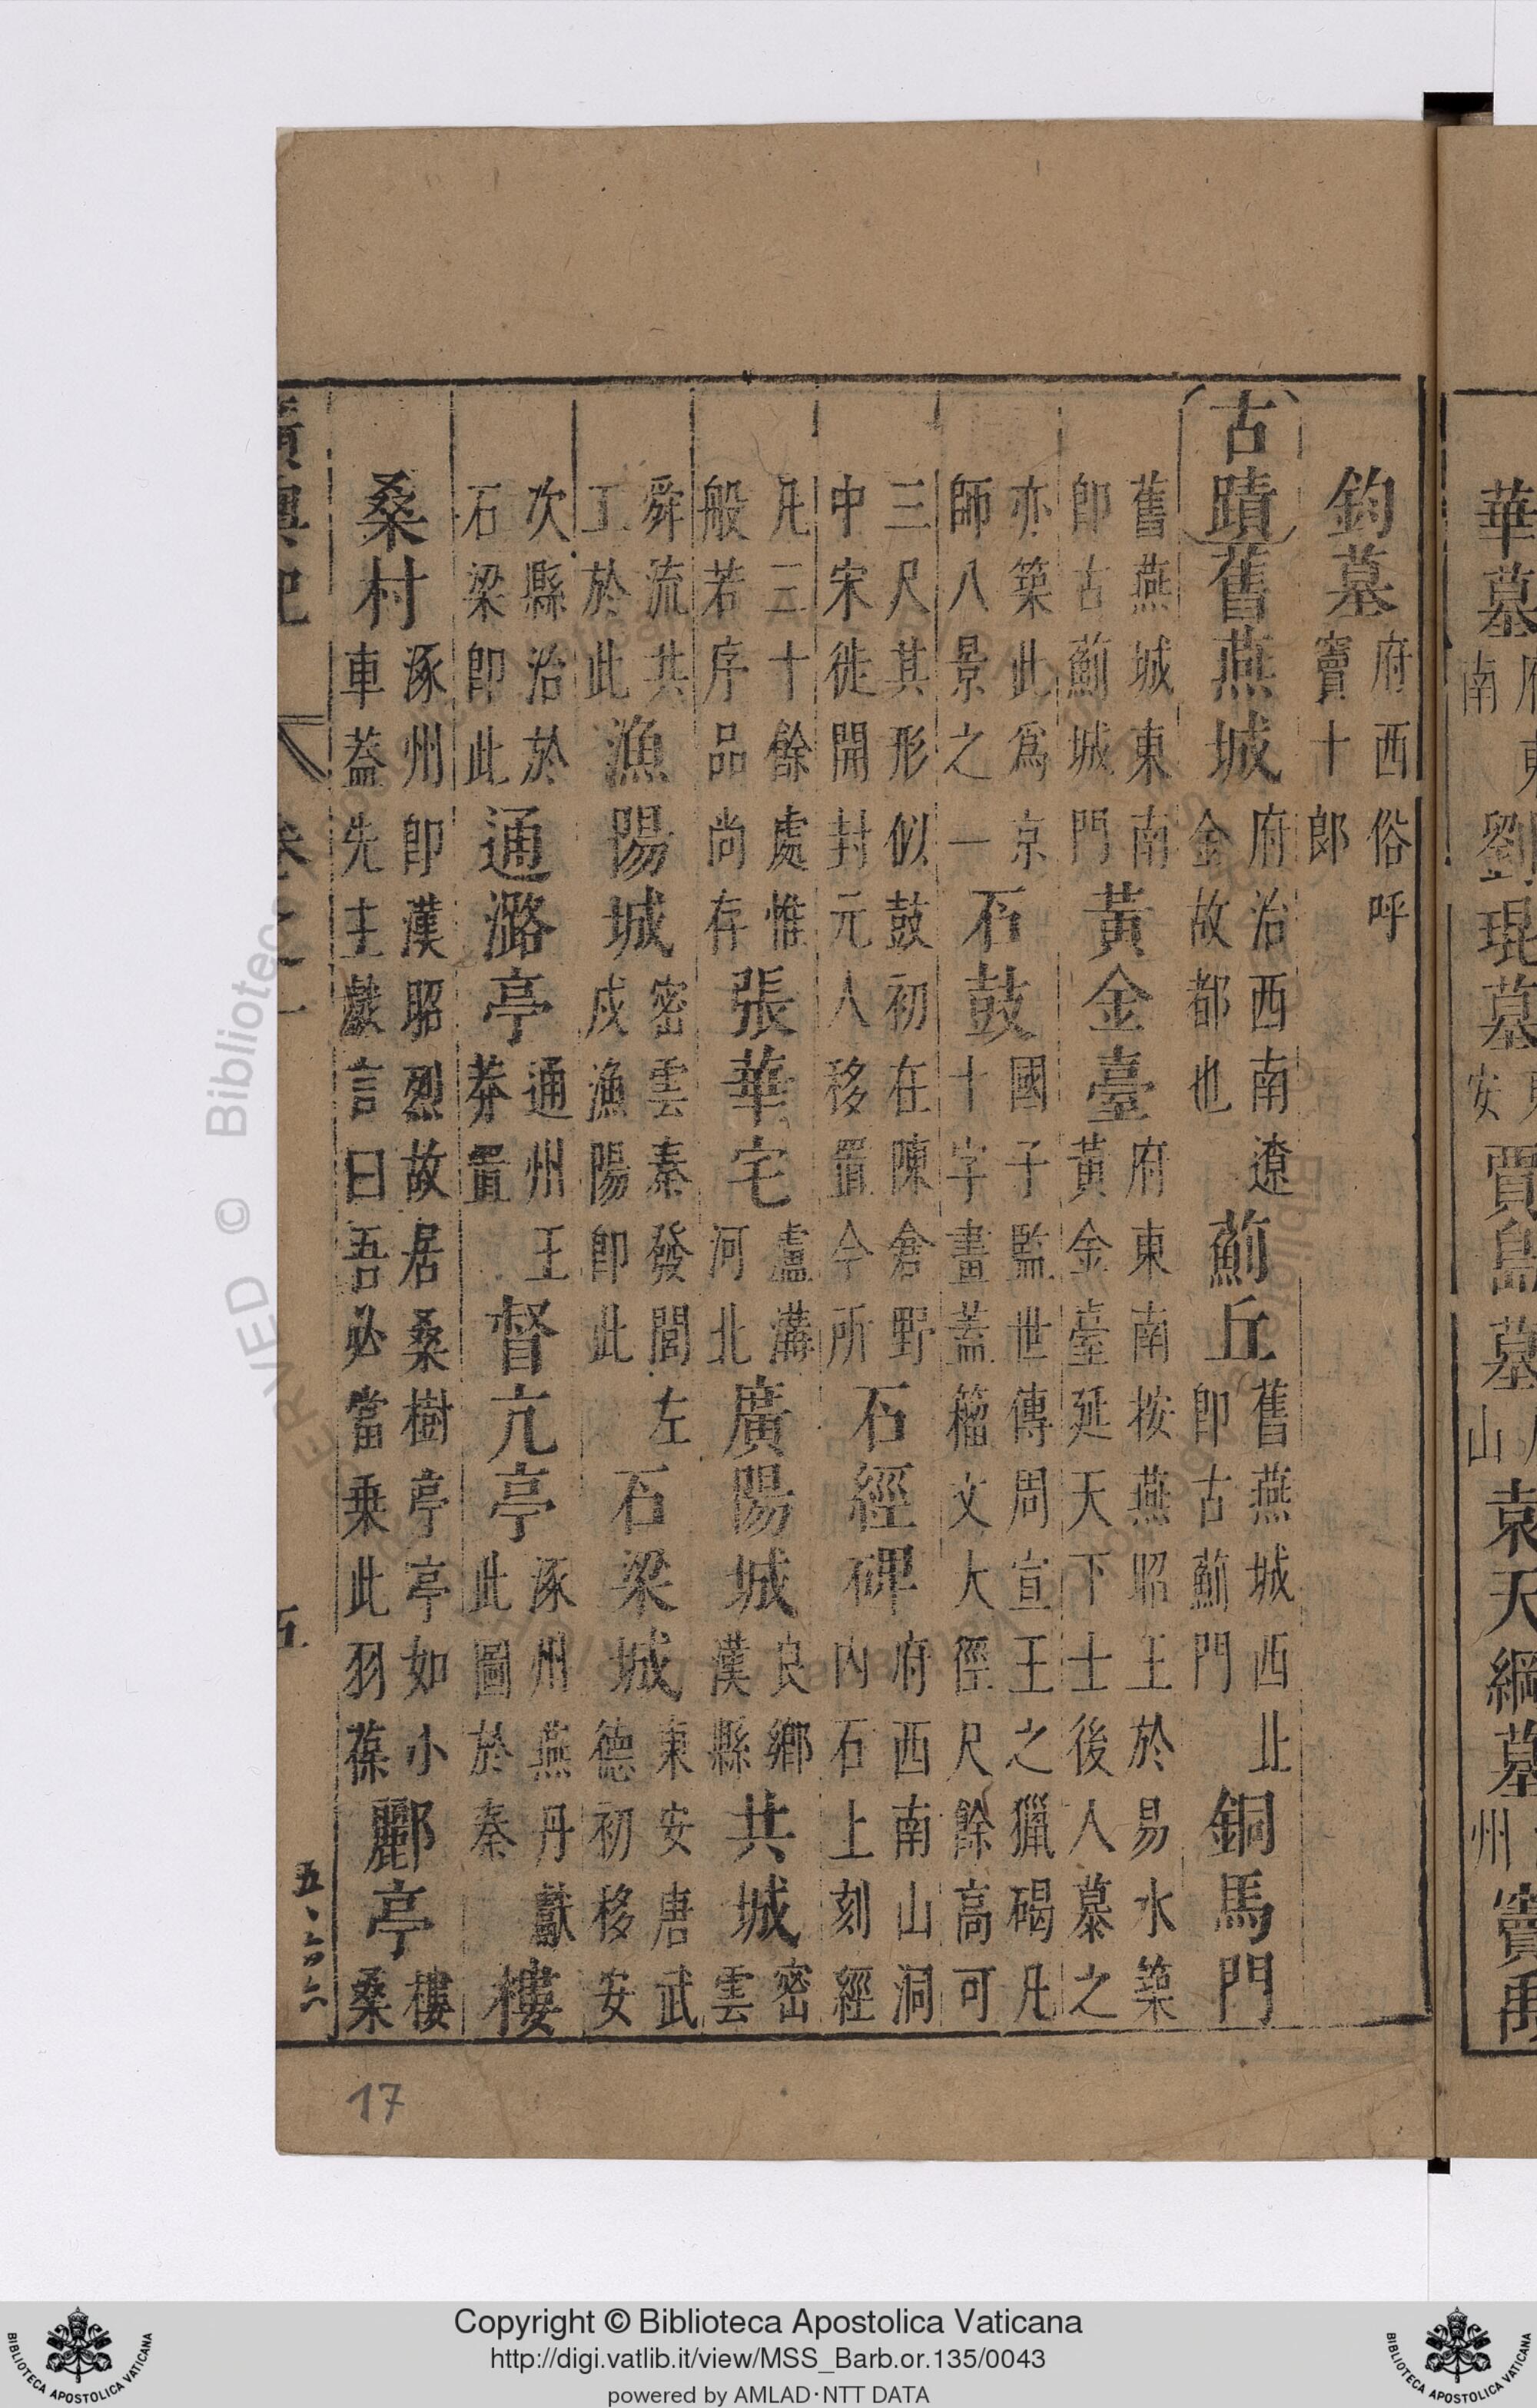 華墓南劉琨墓安賈島墓山袁天綱墓州竇禹
鈞墓府西俗呼竇十郎
古蹟舊燕城府治西南遼金故都也薊丘舊燕城西北卽古薊門銅馬門
舊燕城東南卽古薊城門黃金臺府東南按燕昭王於易水築之黃金臺延天下士後人慕之
亦築此爲京師八景之一石鼓國子監世傳周宣王之獵碣凡十字畫蓋籀文大徑尺餘高可
三尺其形似鼓初在陳倉野中宋徙開封元人移置今所石經碑府西南山洞內石上刻經
凡三十餘處惟般若序品尚存張華宅盧溝河北廣陽城良鄉漢縣共城密雲
舜流共工於此漁陽城密雲秦發閭左戍漁陽卽此石梁城東安唐武德初移安
次縣治於石梁卽此通潞亭通州王莽置督亢亭涿州燕丹獻此圖於秦樓
桑村涿州卽漢昭烈故居桑樹亭亭如小車蓋先主戲言曰吾必當乗此羽葆酈亭樓桑
廣輿記 卷之一 五
17
Copyright © Biblioteca Apostolica Vaticana
http://digi.vatlib.it/view/MSS_Barb.or.135/0043
powered by AMLAD･NTT DATA